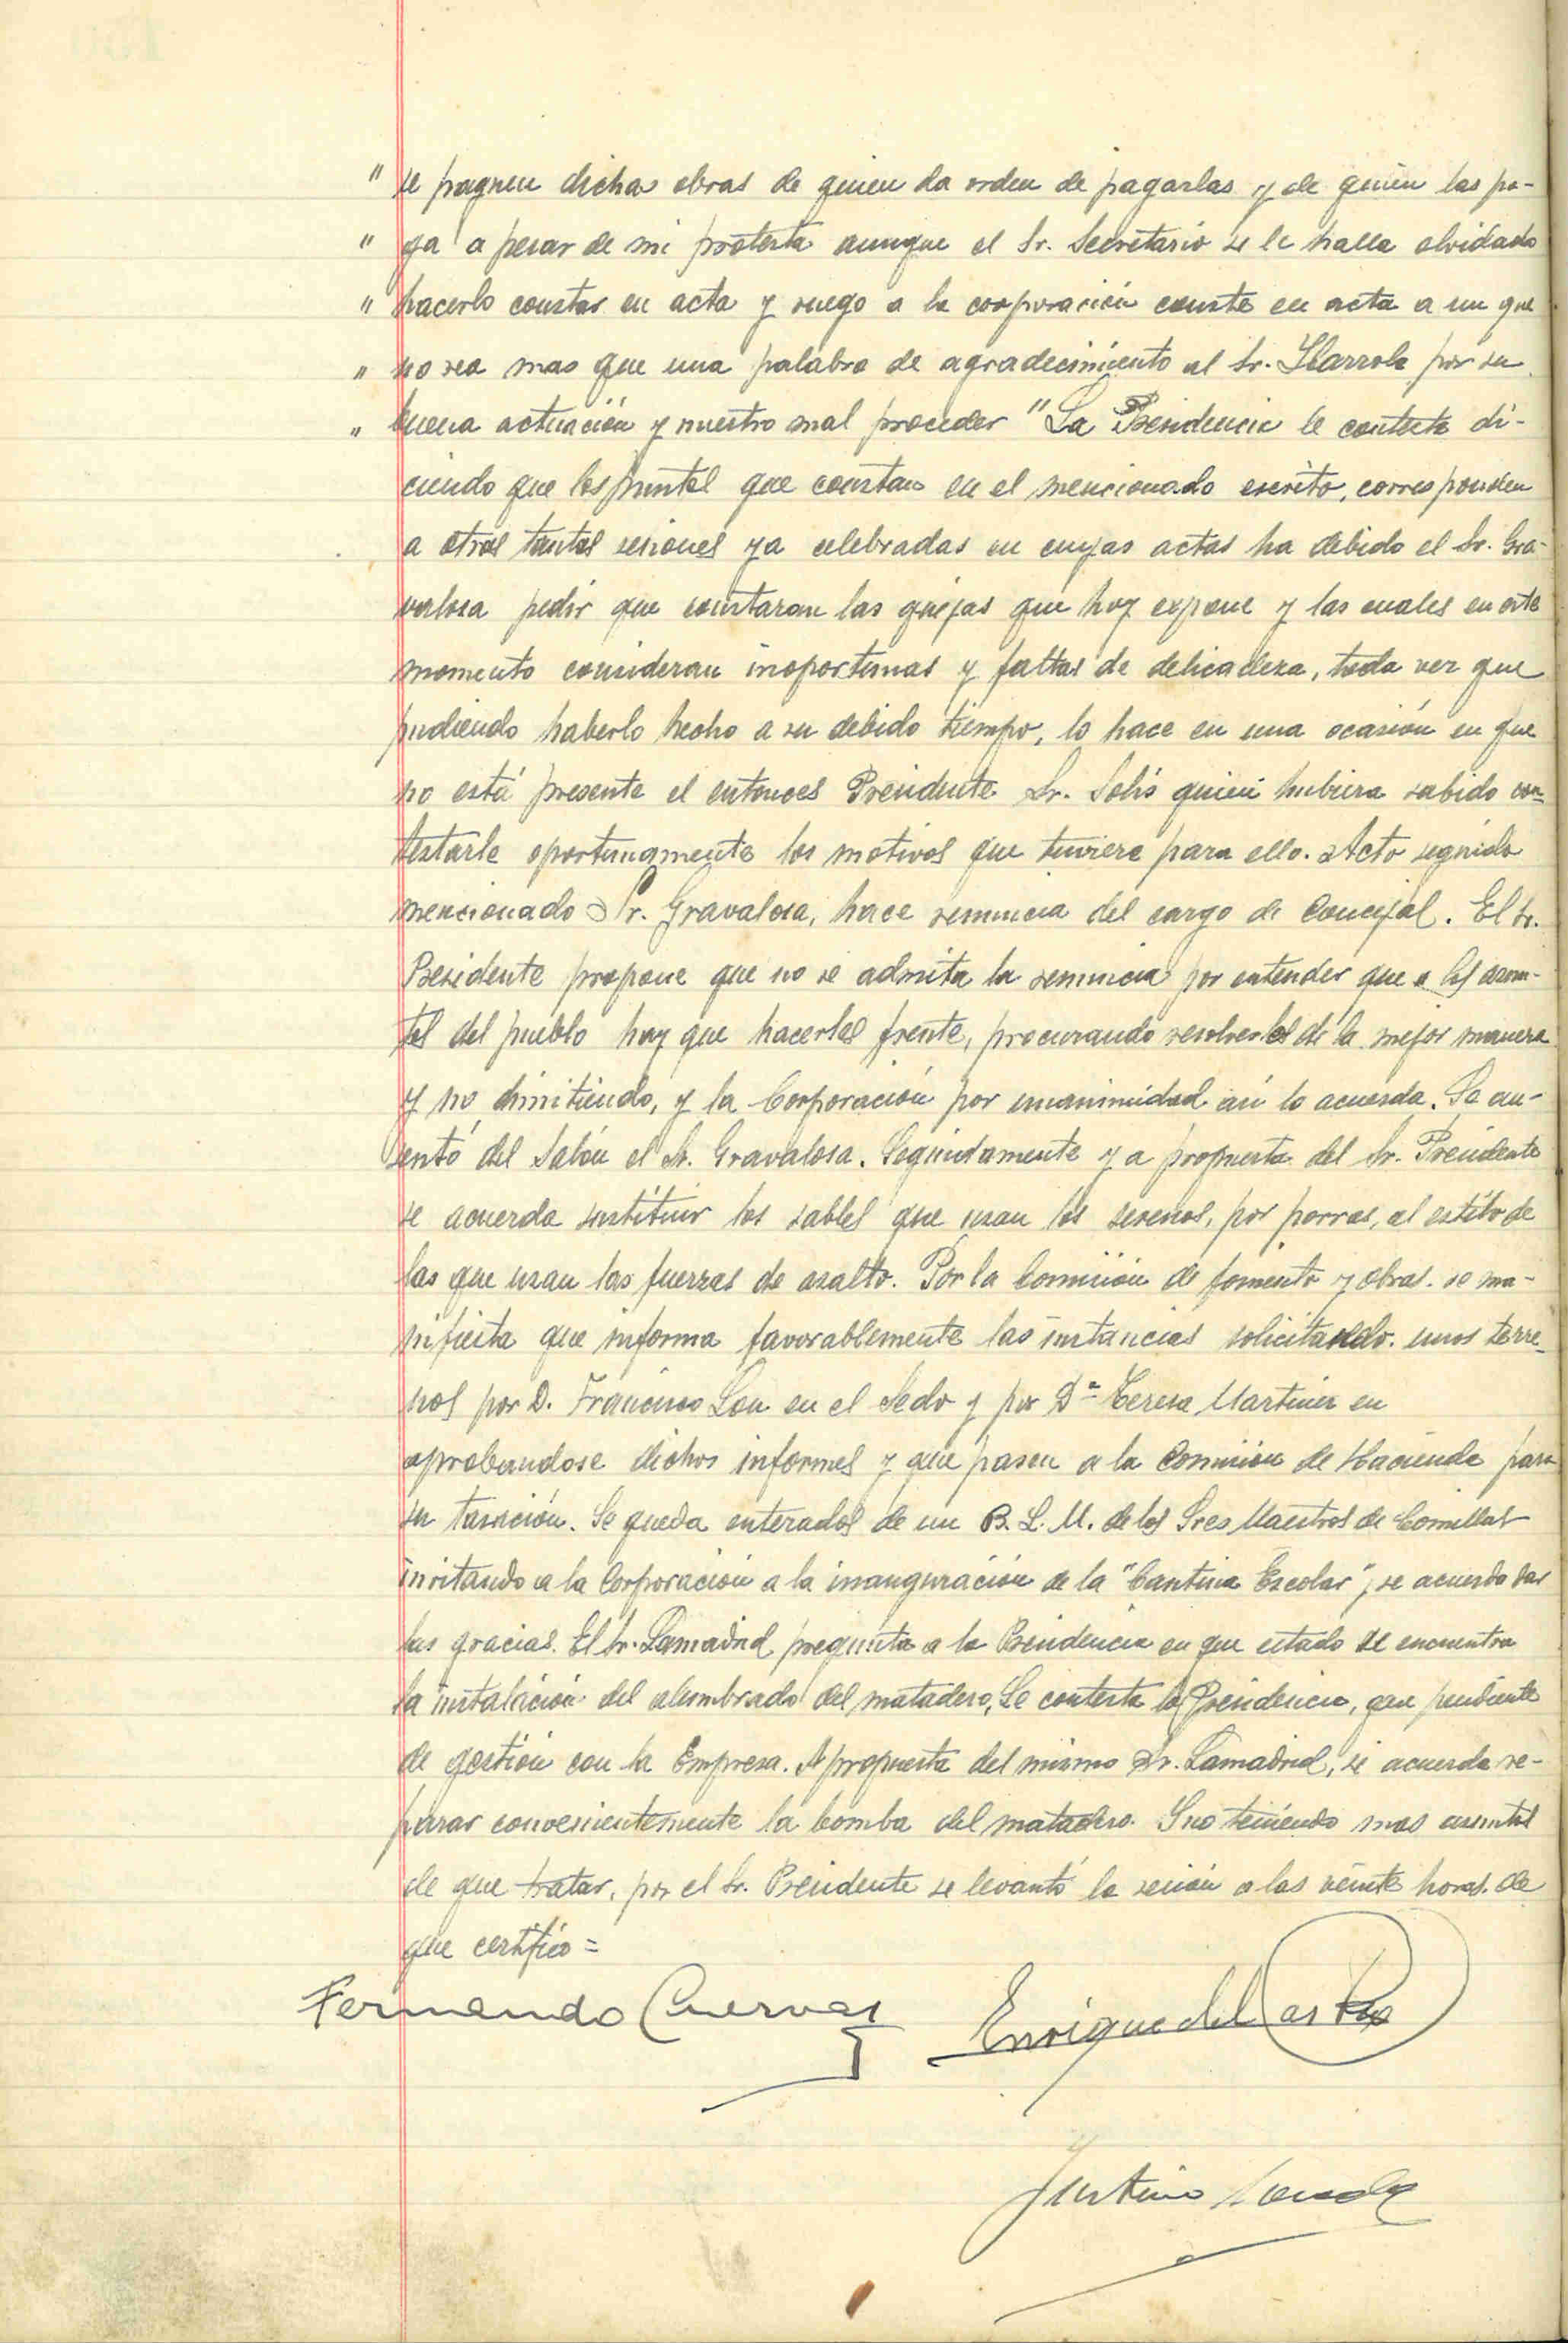 " se paguen dichas obras de quien da orden de pagarlas y de quien las pa-
" ga a pesar de mi protesta aunque el Sr. Secretario se le halla olvidado
" hacerlo constar en acta y ruego a la corporación conste en acta a un que
" no sea mas que una palabra de agradecimiento al Sr. Ilarrola por su
" buena actuación y nuestro mal proceder " La Presidencia le contesta di-
ciendo que los puntos que constan en el mencionado escrito, corresponden
a otras tantas sesiones ya celebradas en cuyas actas ha debido el Sr. Gra-
valosa pedir que constaran las quejas que hoy expone y las cuales en este
momento consideran inoportunas y faltas de delicadeza, toda vez que
pudiendo haberlo hecho a su debido tiempo, lo hace en una ocasión en que
no está presente el entonces Presidente Sr. Solís quien hubiera sabido con-
testarle oportunamente los motivos que tuviere para ello. Acto seguido
mencionado Sr. Gravalosa, hace renuncia del cargo de Concejal. El Sr.
Presidente propone que no se admita la renuncia por entender que a los asun-
tos del pueblo hay que hacerles frente, procurando resolverlos de la mejor manera
y no dimitiendo, y la Corporación por unanimidad así lo acuerda. Se au-
sentó del Salón el Sr. Gravalosa. Seguidamente y a propuesta del Sr. Presidente
se acuerda sustituir los sables que usan los serenos, por porras, al estilo de
las que usan las fuerzas de asalto. Por la Comisión de fomento y obras. se ma-
nifiesta que informa favorablemente las instancias solicitando. unos terre-
nos por D. Francisco Son en el Sedo y por Dª Teresa Martinez en
aprobandose dichos informes y que pasen a la Comisión de Hacienda para
su tasación. Se queda enterados de un B. L. M. de los Sres Maestros de Comillas
invitando a la Corporación a la inauguración de la "Cantina Escolar", se acuerda dar
las gracias. El Sr. Lamadrid pregunta a la Presidencia en que estado se encuentra
la instalación del alumbrado del matadero, Le contesta la Presidencia, que pendiente
de gestión con la Empresa. A propuesta del mismo Sr. Lamadrid, se acuerda re-
parar convenientemente la bomba del matadero. Y no teniendo mas asuntos
de que tratar, por el Sr. Presidente se levantó la sesión a las veinte horas. de
que certifico =
Fernando Cuevas Enrique del Castro
Justino